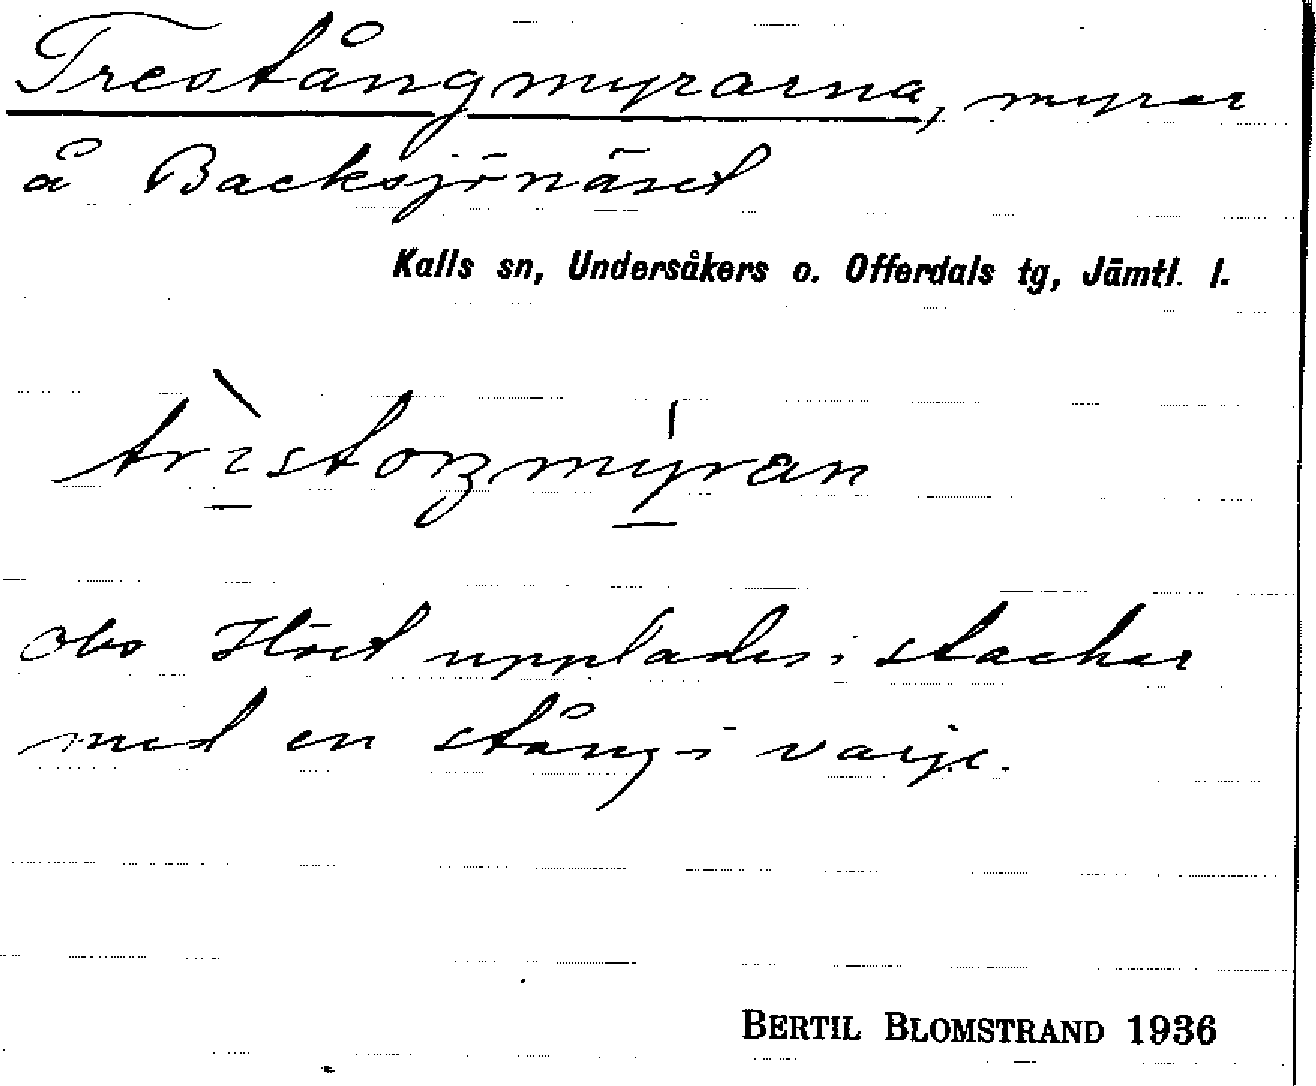 Trestångmyrarna, myrar
å Backsjönäset
Kalls sn, Undersåkers o. Offerdals tg, Jämtl. l.
trìstoŋmyran
obs Höet upplades i stackar
med en stång i varje.
BERTIL BLOMSTRAND 1936